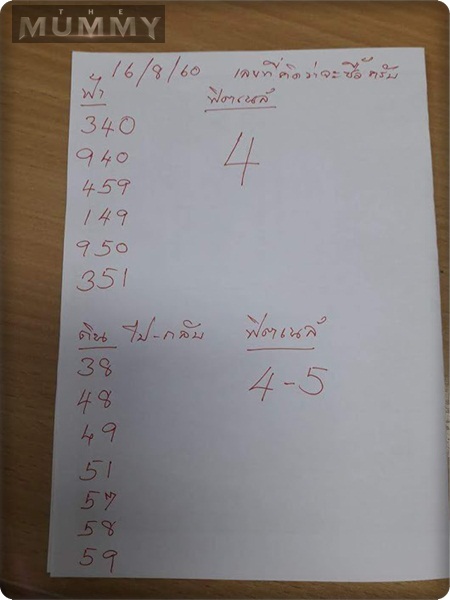 THE
MUMMY
16/8/60 เลขที่คิดว่าจะซื้อครับ
ฟ้า ฟิตเนส์
340
940
4
459
149
950
351
ดิน ไป-กลับ ฟิตเนส์
38
4-5
48
49
51
57
58
59